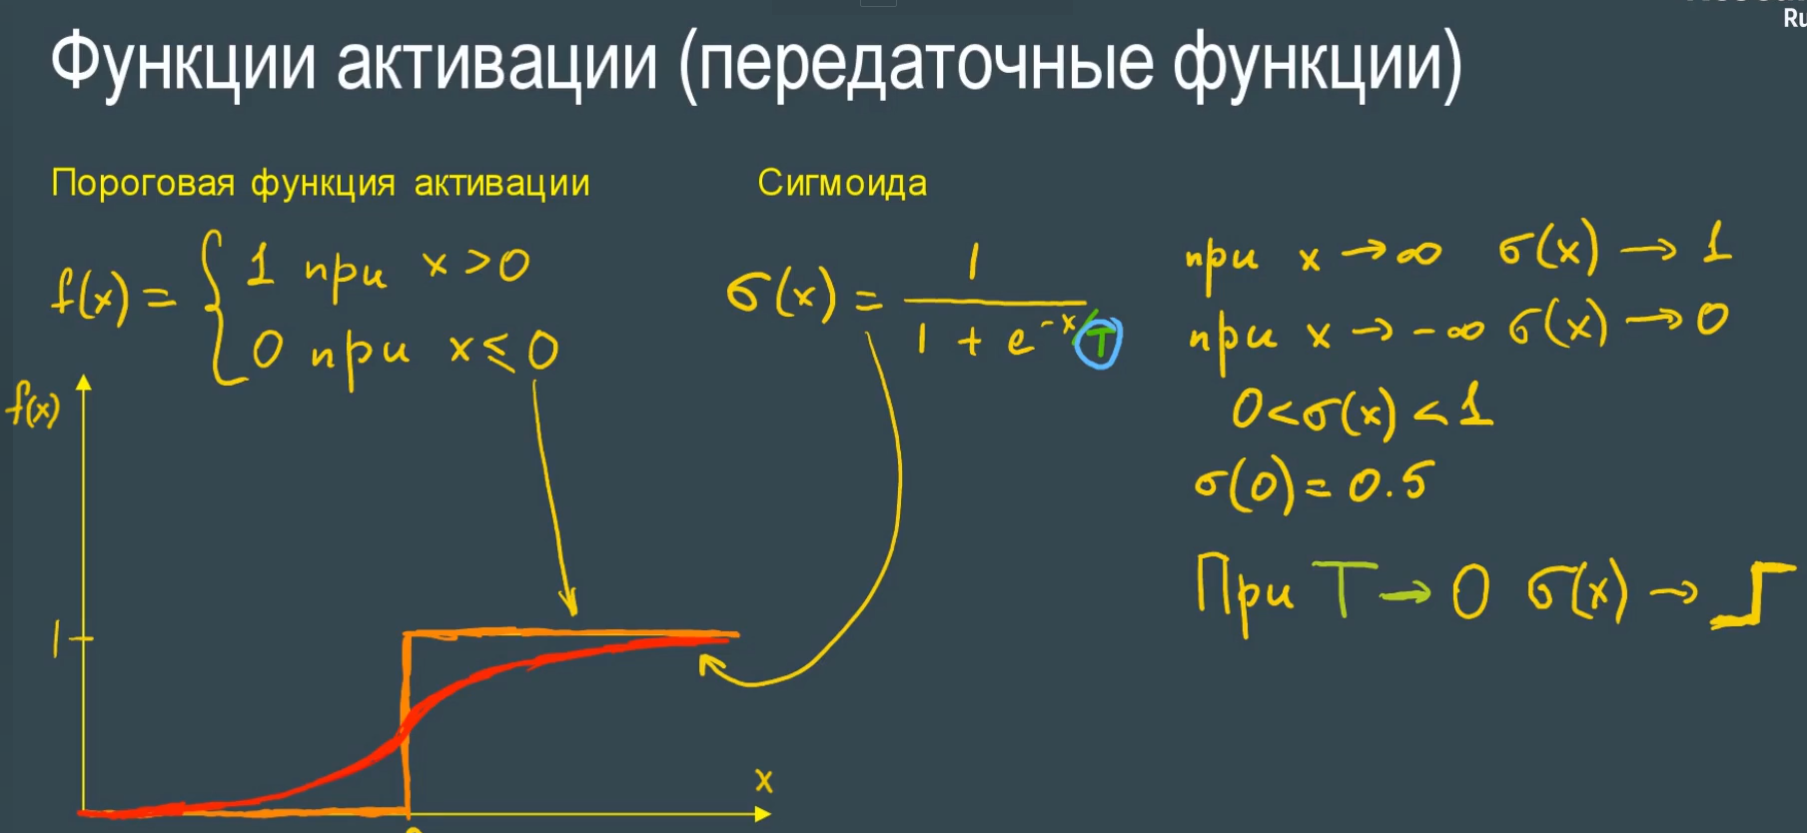 Ru
Функции активации (передаточные функции)
Пороговая функция активации
f(x) = { 1 при x > 0
0 при x ⩽ 0
Сигмоида
σ(x) = 1 / (1 + e^(-x/T))
при x → ∞ σ(x) → 1
при x → -∞ σ(x) → 0
0 < σ(x) < 1
σ(0) = 0.5
При T → 0 σ(x) →
f(x)
1
x